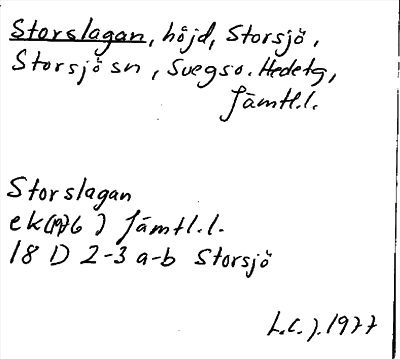 Storslagan, höjd, Storsjö,
Storsjö sn, Svegs o. Hedetg,
Jämtl.l.
Storslagan
ek (1976) Jämtl.l.
18 D 2-3 a-b Storsjö
L.C.J. 1977